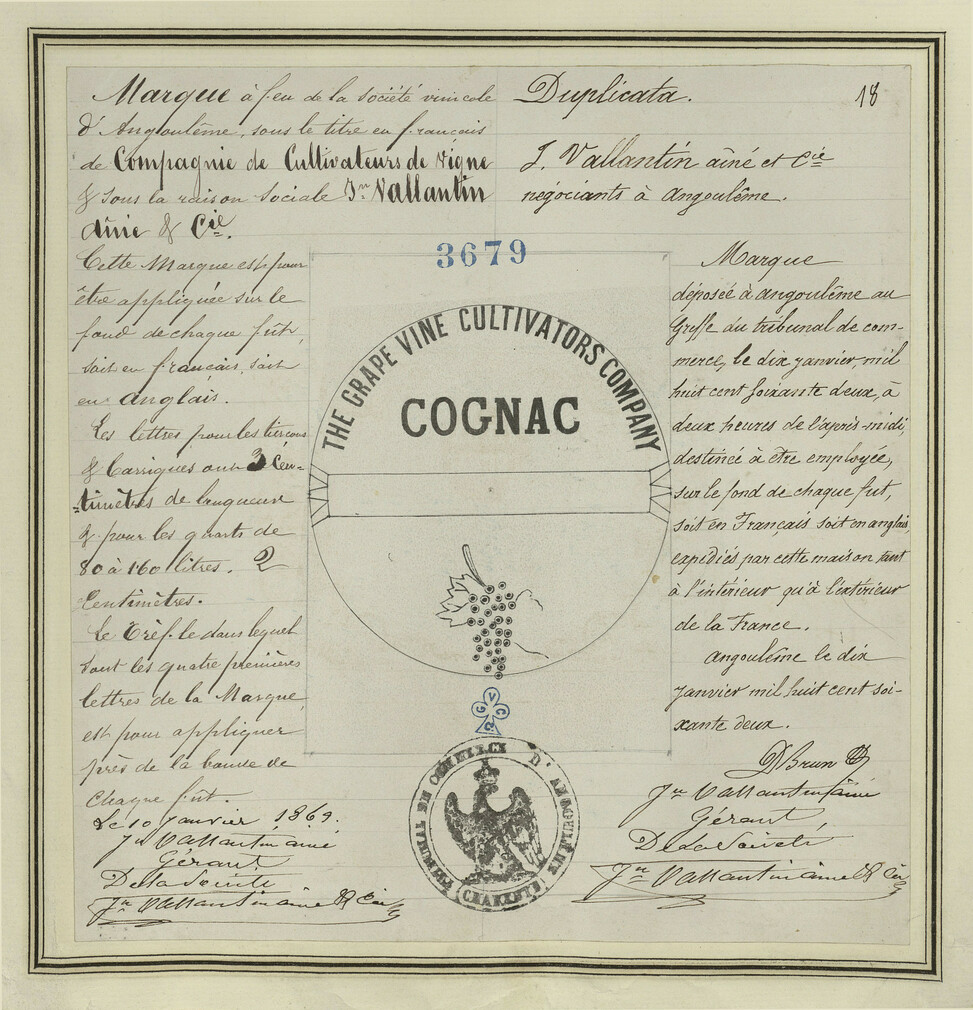 Marque à feu de la Société vinicole
d'Angoulême, sous le titre en français
de Compagnie de Cultivateurs de Vigne
& sous la raison Sociale Jn Vallantin
aîné & Cie.
Cette Marque est pour
être appliquée sur le
fond de chaque fût,
soit en français, soit
en anglais.
Les lettres pour les tierçons
& barriques ont 3 Cen-
-timètres de longueur
& pour les quarts de
80 à 160 litres. 2
Centimètres.
Le Trèfle dans lequel
sont les quatre premières
lettres de la Marque,
est pour appliquer
près de la bande de
chaque fût.
Le 10 Janvier 1862.
Jn Vallantin aîné
Gérant
De la Société
Jn Vallantin aîné & Cie
Duplicata.
18
J. Vallantin aîné et Cie
négociants à Angoulême.
3679
THE GRAPE VINE CULTIVATORS COMPANY
COGNAC
V
G C
TRIBUNAL DE COMMERCE D'ANGOULÊME
(CHARENTE)
Marque
déposée à Angoulême au
Greffe du tribunal de com-
merce, le dix janvier, mil
huit cent soixante deux, à
deux heures de l'après-midi,
destinée à être employée,
sur le fond de chaque fut,
soit en Français soit en anglais,
expédiés par cette maison tant
à l'intérieur qu'à l'extérieur
de la France.
Angoulême le dix
janvier mil huit cent soi-
xante deux.
D Brun
Jn Vallantin aîné
Gérant
De la Société
Jn Vallantin aîné & Cie